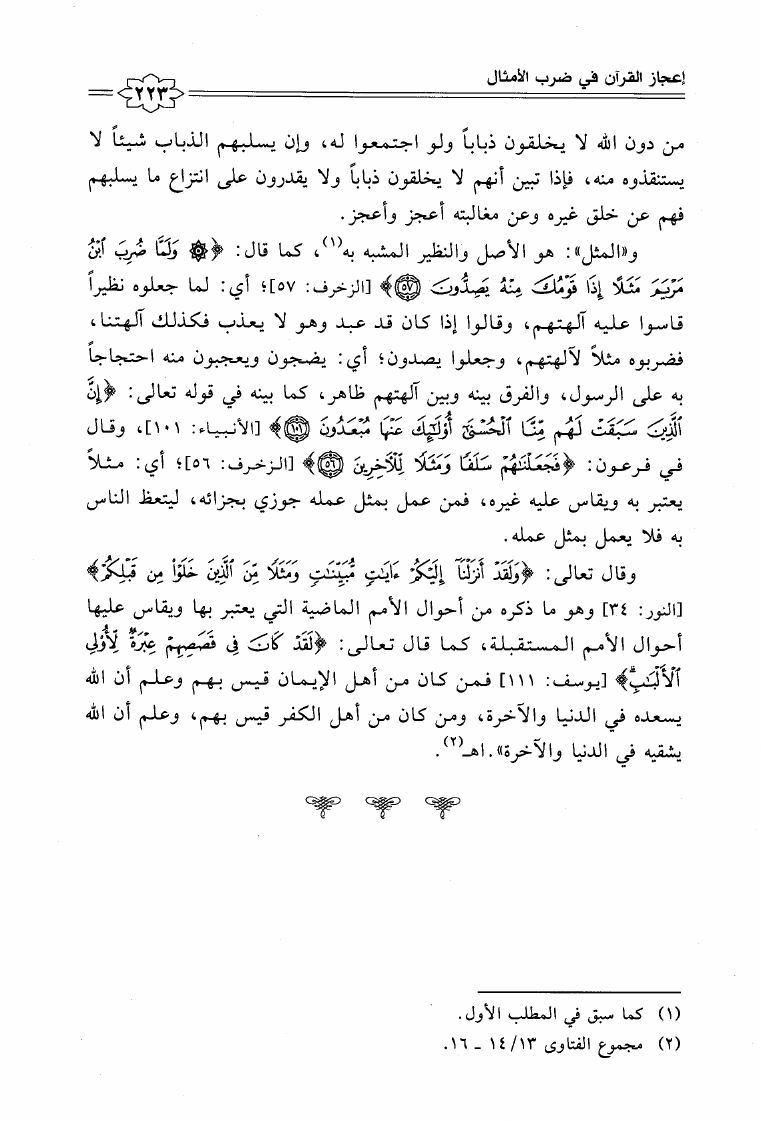 إعجاز القرآن في ضرب الأمثال
٢٢٣
من دون الله لا يخلقون ذباباً ولو اجتمعوا له، وإن يسلبهم الذباب شيئاً لا
يستنقذوه منه، فإذا تبين أنهم لا يخلقون ذباباً ولا يقدرون على انتزاع ما يسلبهم
فهم عن خلق غيره وعن مغالبته أعجز وأعجز.
و«المثل»: هو الأصل والنظير المشبه به(١)، كما قال: ﴿۞ وَلَمَّا ضُرِبَ ٱبْنُ
مَرْيَمَ مَثَلًا إِذَا قَوْمُكَ مِنْهُ يَصِدُّونَ ۝٥٧﴾ [الزخرف: ٥٧]؛ أي: لما جعلوه نظيراً
قاسوا عليه آلهتهم، وقالوا إذا كان قد عبد وهو لا يعذب فكذلك آلهتنا،
فضربوه مثلاً لآلهتهم، وجعلوا يصدون؛ أي: يضجون ويعجبون منه احتجاجاً
به على الرسول، والفرق بينه وبين آلهتهم ظاهر، كما بينه في قوله تعالى: ﴿إِنَّ
ٱلَّذِينَ سَبَقَتْ لَهُم مِّنَّا ٱلْحُسْنَىٰٓ أُو۟لَـٰٓئِكَ عَنْهَا مُبْعَدُونَ ۝١٠١﴾ [الأنبياء: ١٠١]، وقال
في فرعون: ﴿فَجَعَلْنَـٰهُمْ سَلَفًا وَمَثَلًا لِّلْـَٔاخِرِينَ ۝٥٦﴾ [الزخرف: ٥٦]؛ أي: مثلاً
يعتبر به ويقاس عليه غيره، فمن عمل بمثل عمله جوزي بجزائه، ليتعظ الناس
به فلا يعمل بمثل عمله.
وقال تعالى: ﴿وَلَقَدْ أَنزَلْنَآ إِلَيْكُمْ ءَايَـٰتٍ مُّبَيِّنَـٰتٍ وَمَثَلًا مِّنَ ٱلَّذِينَ خَلَوْا۟ مِن قَبْلِكُمْ﴾
[النور: ٣٤] وهو ما ذكره من أحوال الأمم الماضية التي يعتبر بها ويقاس عليها
أحوال الأمم المستقبلة، كما قال تعالى: ﴿لَقَدْ كَانَ فِى قَصَصِهِمْ عِبْرَةٌ لِّأُو۟لِى
ٱلْأَلْبَـٰبِۗ﴾ [يوسف: ١١١] فمن كان من أهل الإيمان قيس بهم وعلم أن الله
يسعده في الدنيا والآخرة، ومن كان من أهل الكفر قيس بهم، وعلم أن الله
يشقيه في الدنيا والآخرة».اهـ(٢).
(١) كما سبق في المطلب الأول.
(٢) مجموع الفتاوى ١٤/١٣ ـ ١٦.